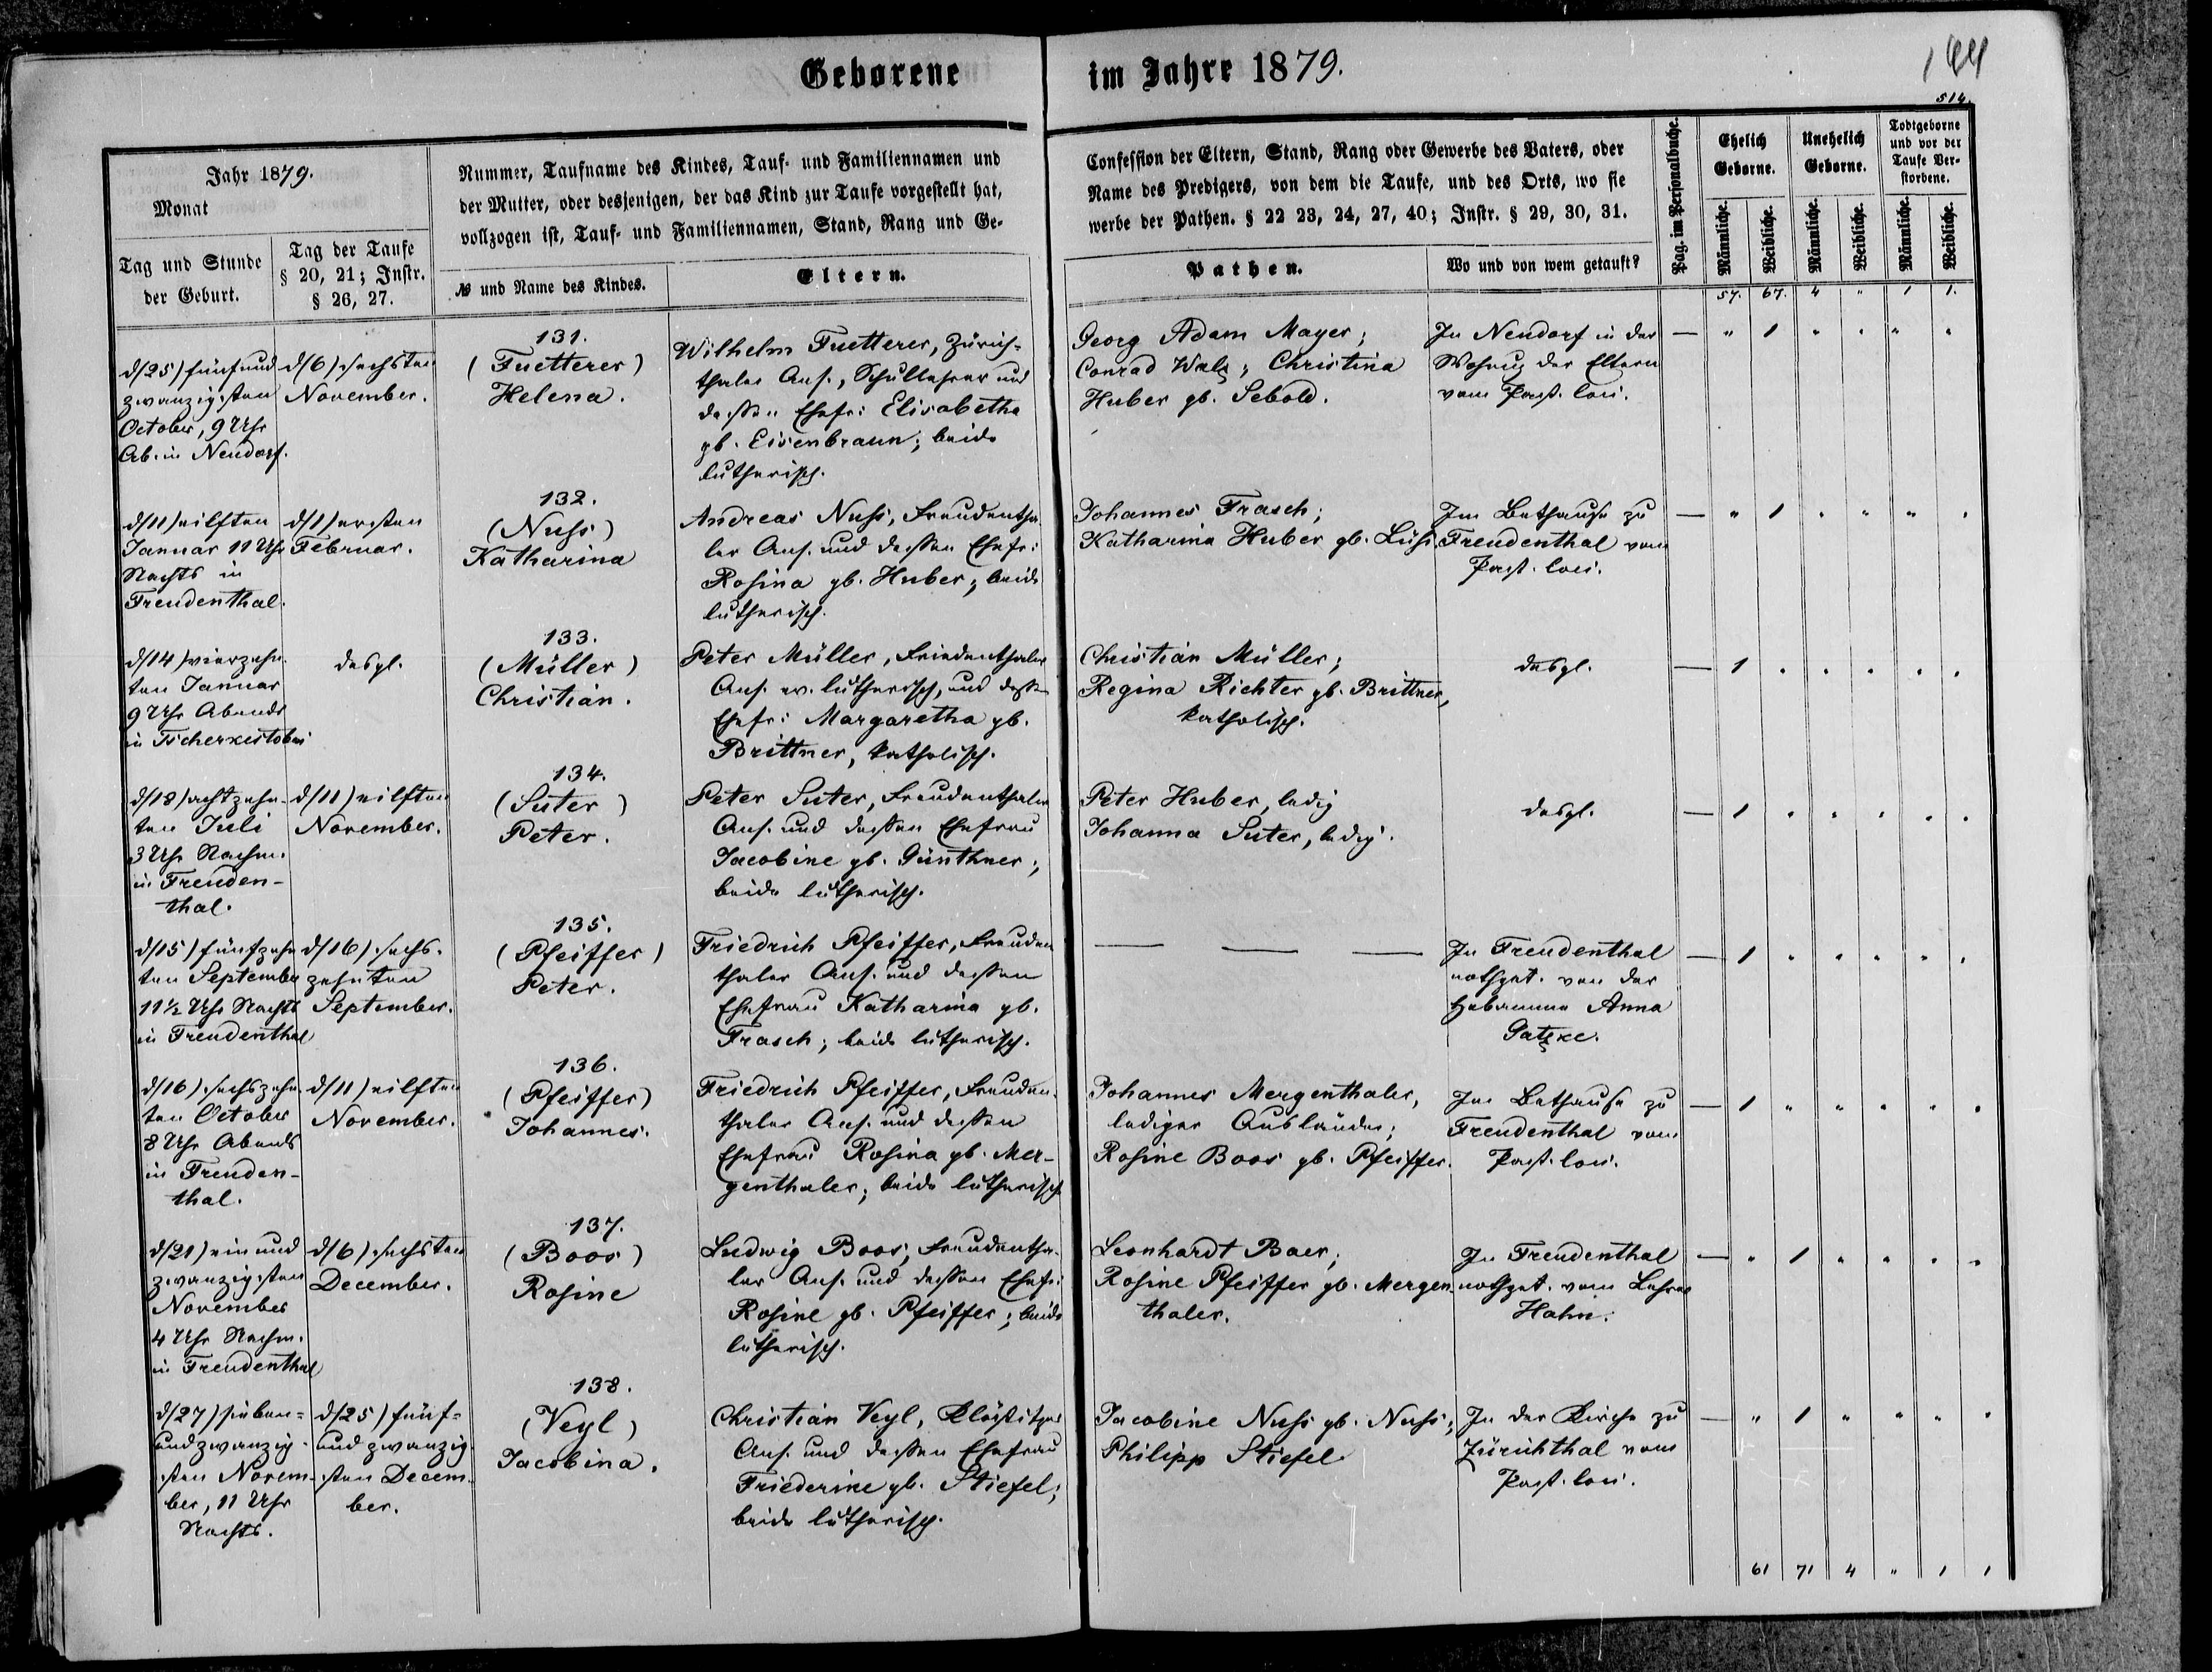 Geborene im Jahre 1879.
144
514.
Jahr 1879.
Monat
Tag und Stunde
der Geburt.
Tag der Taufe
§ 20, 21; Instr.
§ 26, 27.
Nummer, Taufname des Kindes, Tauf- und Familiennamen und
der Mutter, oder desjenigen, der das Kind zur Taufe vorgestellt hat,
vollzogen ist, Tauf- und Familiennamen, Stand, Rang und Ge-
№ und Name des Kindes.
Eltern.
Confession der Eltern, Stand, Rang oder Gewerbe des Vaters, oder
Name des Predigers, von dem die Taufe, und des Orts, wo sie
werbe der Pathen. § 22 23, 24, 27, 40; Instr. § 29, 30, 31.
Pathen.
Wo und von wem getauft?
Pag. im Personalbuche.
Ehelich
Geborne.
Unehelich
Geborne.
Todtgeborne
und vor der
Taufe Ver-
storbene.
Männliche.
Weibliche.
Männliche.
Weibliche.
Männliche.
Weibliche.
57. 67. 4 " 1 1.
d/25) fünfund
zwanzigsten
October, 9 Uhr
Ab. in Neudorf.
d/6) sechsten
November.
131.
(Fuetterer)
Helena.
Wilhelm Fuetterer, Zürich-
thaler Ans., Schullehrer und
dessen Ehefr: Elisabetha
gb. Eisenbraun; beide
lutherisch.
Georg Adam Mayer;
Conrad Walz; Christina
Huber gb. Sebold.
In Neudorf in der
Wohnug der Eltern
vom Past. loci.
— " 1 " " " "
d/11) eilften
Januar 11 Uhr
Nachts in
Freudenthal.
d/1) ersten
Februar.
132.
(Nuss)
Katharina
Andreas Nuss, Freudentha
ler Ans. und dessen Ehefr:
Rosina gb. Huber; beide
lutherisch.
Johannes Frasch;
Katharina Huber gb.
Im Bethause zu
Freudenthal vom
Past. loci.
— " 1 " " " "
d/14) vierzehn-
ten Januar
9 Uhr Abends
in
desgl.
133.
(Müller)
Christian.
Peter Müller, Friedenthaler
Ans. ev. lutherisch, und dessen
Ehefr: Margaretha gb.
Brittner, katholisch.
Christian Müller;
Regina Richter gb. Brittner,
katholisch.
desgl.
— 1 " " " " "
d/18) achtzehn-
ten Juli
3 Uhr Nachm.
in Freuden-
thal.
d/11) eilften
November.
134.
(Suter)
Peter.
Peter Suter, Freudenthaler
Ans. und dessen Ehefrau
Jacobine gb. Günthner;
beide lutherisch.
Peter Huber, ledig
Johanna Suter, ledig.
desgl.
— 1 " " " " "
d/15) fünfzehn
ten September
11½ Uhr Nachts
in Freudenthal
d/16) sechs-
zehnten
September.
135.
(Pfeiffer)
Peter.
Friedrich Pfeiffer, Freuden
thaler Ans. und dessen
Ehefrau Katharina gb.
Frasch; beide lutherisch.
— — —
In Freudenthal
nothget. von der
Hebamme Anna
Gatzke.
— 1 " " " " "
d/16) sechszehn-
ten October
8 Uhr Abends
in Freuden-
thal.
d/11) eilften
November.
136.
(Pfeiffer)
Johannes.
Friedrich Pfeiffer, Freuden-
thaler Ans. und dessen
Ehefrau Rosina gb. Mer-
genthaler; beide lutherisch
Johannes Mergenthaler,
lediger Ausländer;
Rosine Boos gb. Pfeiffer.
Im Bethause zu
Freudenthal vom
Past. loci.
— 1 " " " " "
d/21) ein und
zwanzigsten
November
4 Uhr Nachm.
in Freudenthal
d/6) sechsten
December.
137.
(Boos)
Rosine
Ludwig Boos, Freudentha-
ler Ans. und dessen Ehefr:
Rosine gb. Pfeiffer; beide
lutherisch.
Leonhardt Baer;
Rosine Pfeiffer gb. Mergen-
thaler.
In Freudenthal
nothget. vom Lehrer
Hahn.
— " 1 " " " "
d/27) sieben-
undzwanzig-
sten Novem-
ber, 11 Uhr
Nachts.
d/25) fünf-
und zwanzig
sten Decem-
ber.
138.
(Veyl)
Jacobina.
Christian Veyl,
Ans. und dessen Ehefrau
Friederine gb. Stiefel;
beide lutherisch.
Jacobine Nuss gb. Nuss;
Philipp Stiefel
In der Kirche zu
Zürichthal vom
Past. loci.
— " 1 " " " "
61 71 4 " 1 1